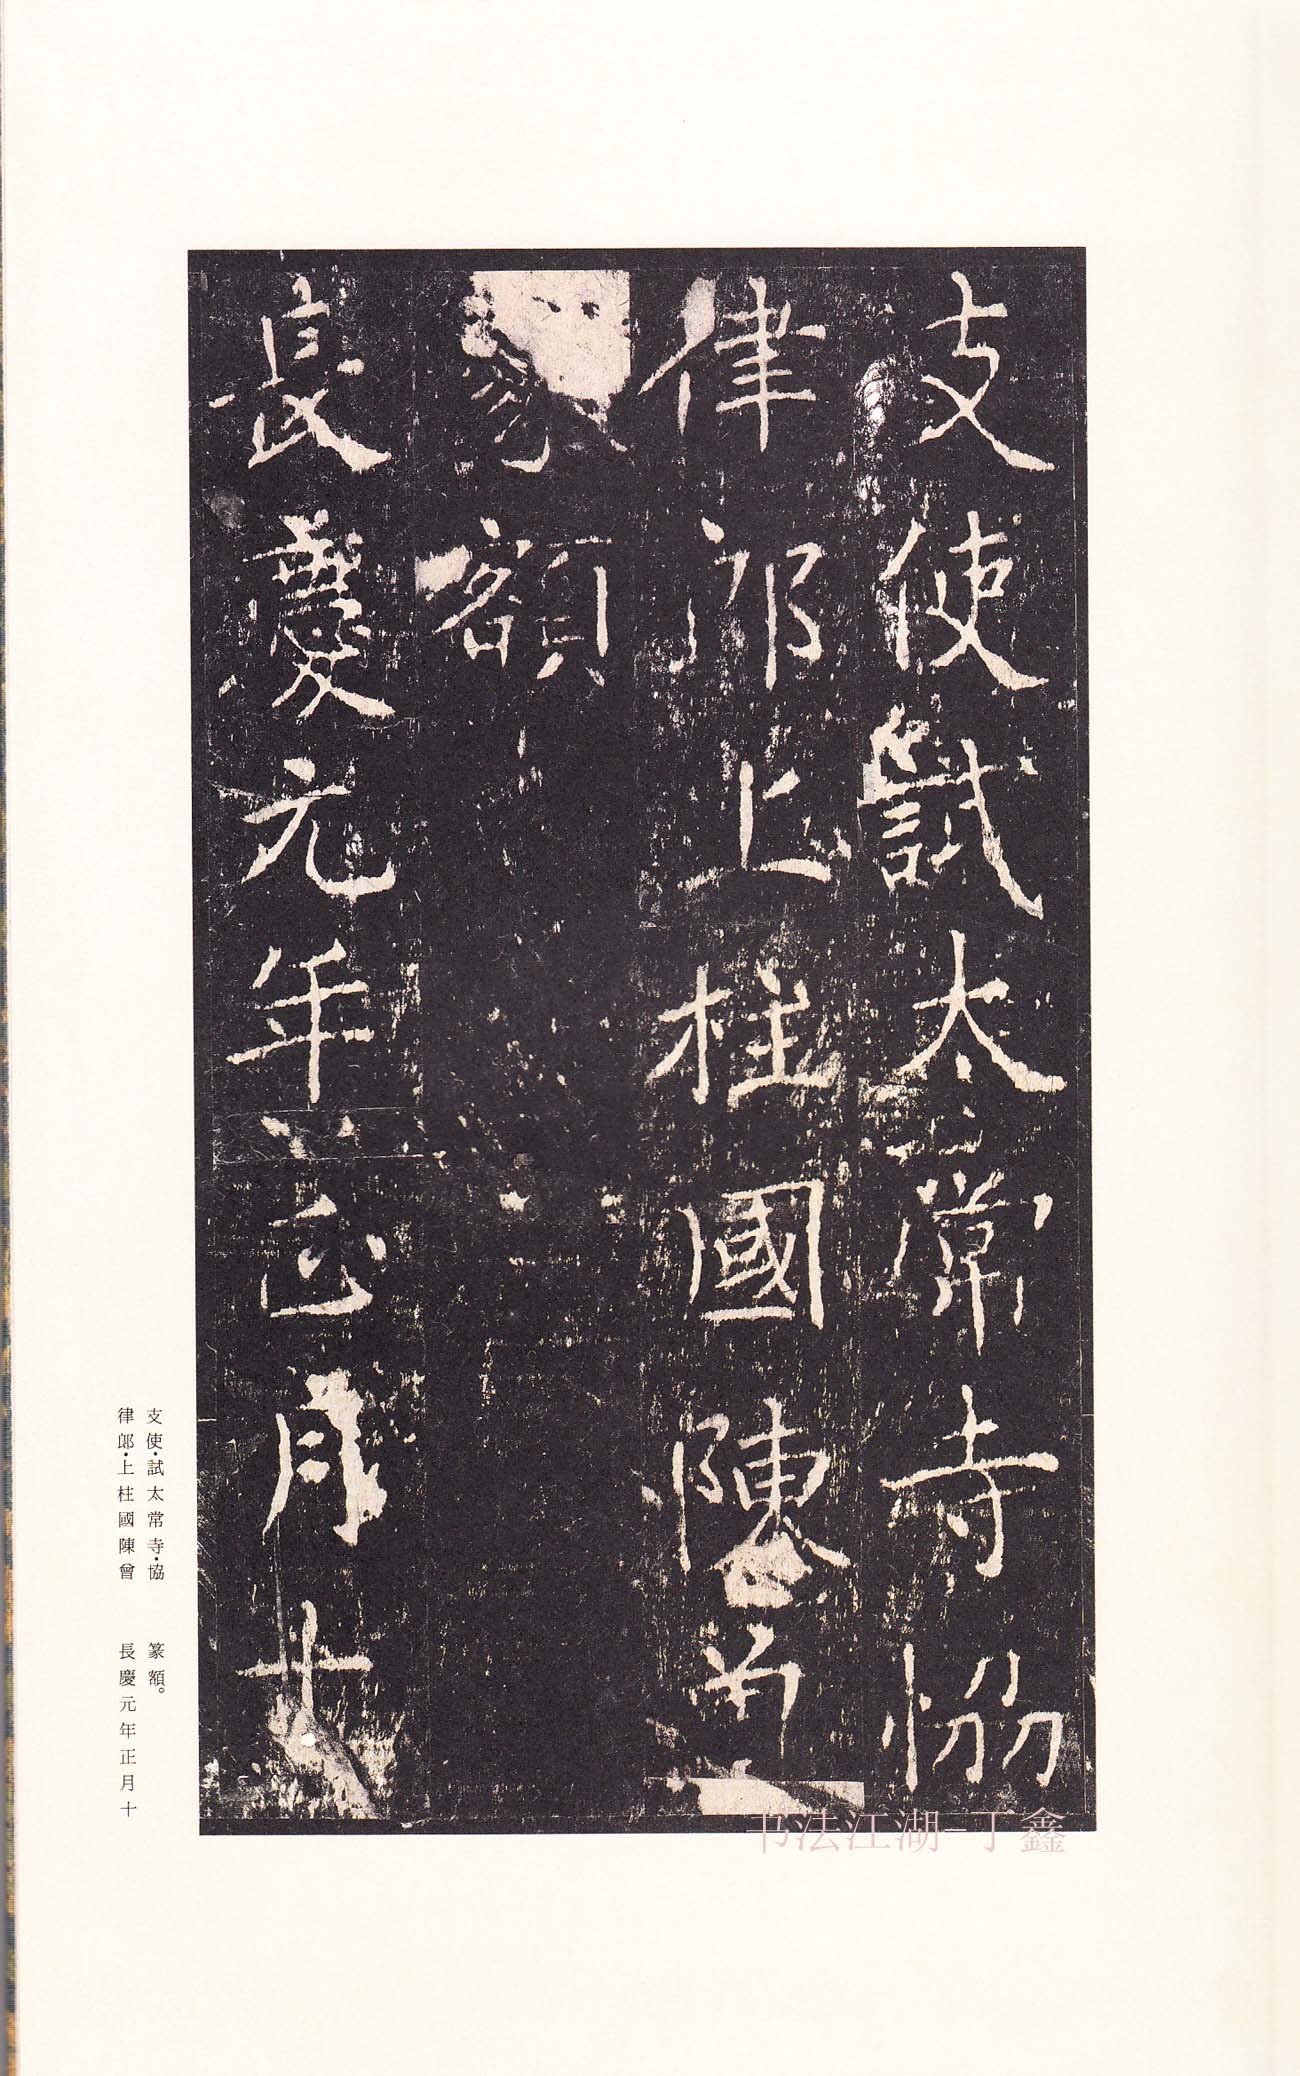 支使試太常寺協
律郎上柱國陳曾
篆額
長慶元年正月十
支使・試太常寺・協
律郎・上柱國陳曾
篆額。
長慶元年正月十
书法江湖-丁鑫